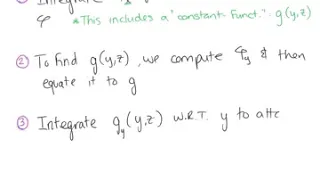 ① Integrate
φ *This includes a "constant Funct." g(y,z)
② To find g(y,z), we compute φy & then
equate it to g
③ Integrate gy(y,z) W.R.T. y to atta